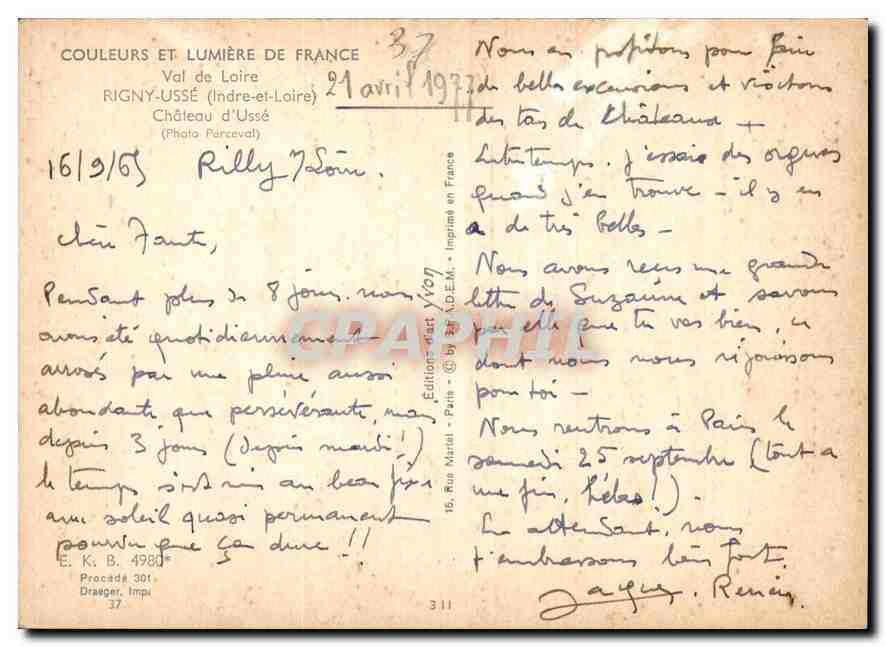 COULEURS ET LUMIÈRE DE FRANCE
Val de Loire
RIGNY-USSÉ (Indre-et-Loire)
Château d'Ussé
(Photo Perceval)
37
21 avril 1977
16/9/65 Rilly s/Loire.
Chère Tante,
Pendant plus de 8 jours nous
avons été quotidiennement
arrosés par une pluie aussi
abondante que persévérante, mais
depuis 3 jours (depuis mardi!)
le temps s'est mis au beau fixe
avec soleil quasi permanent
pourvu que ça dure !!
E. K. B. 4980*
Procédé 301
Draeger, Imp
37
311
15, Rue Martel - Paris - © by S.P.A.D.E.M. - Imprimé en France
Éditions d'art Yvon
CPAPHIL
Nous en profitons pour faire
de belles excursions et visitons
des tas de Châteaux +
Entretemps, j'essaie des orgues
quand j'en trouve - il y en
a de très belles -
Nous avons reçu une grande
lettre de Suzanne et savons
par elle que tu vas bien, ce
dont nous nous réjouissons
pour toi -
Nous rentrons à Paris le
samedi 25 septembre (tout a
une fin, hélas!).
En attendant, nous
t'embrassons bien fort.
Jacques. Renée.